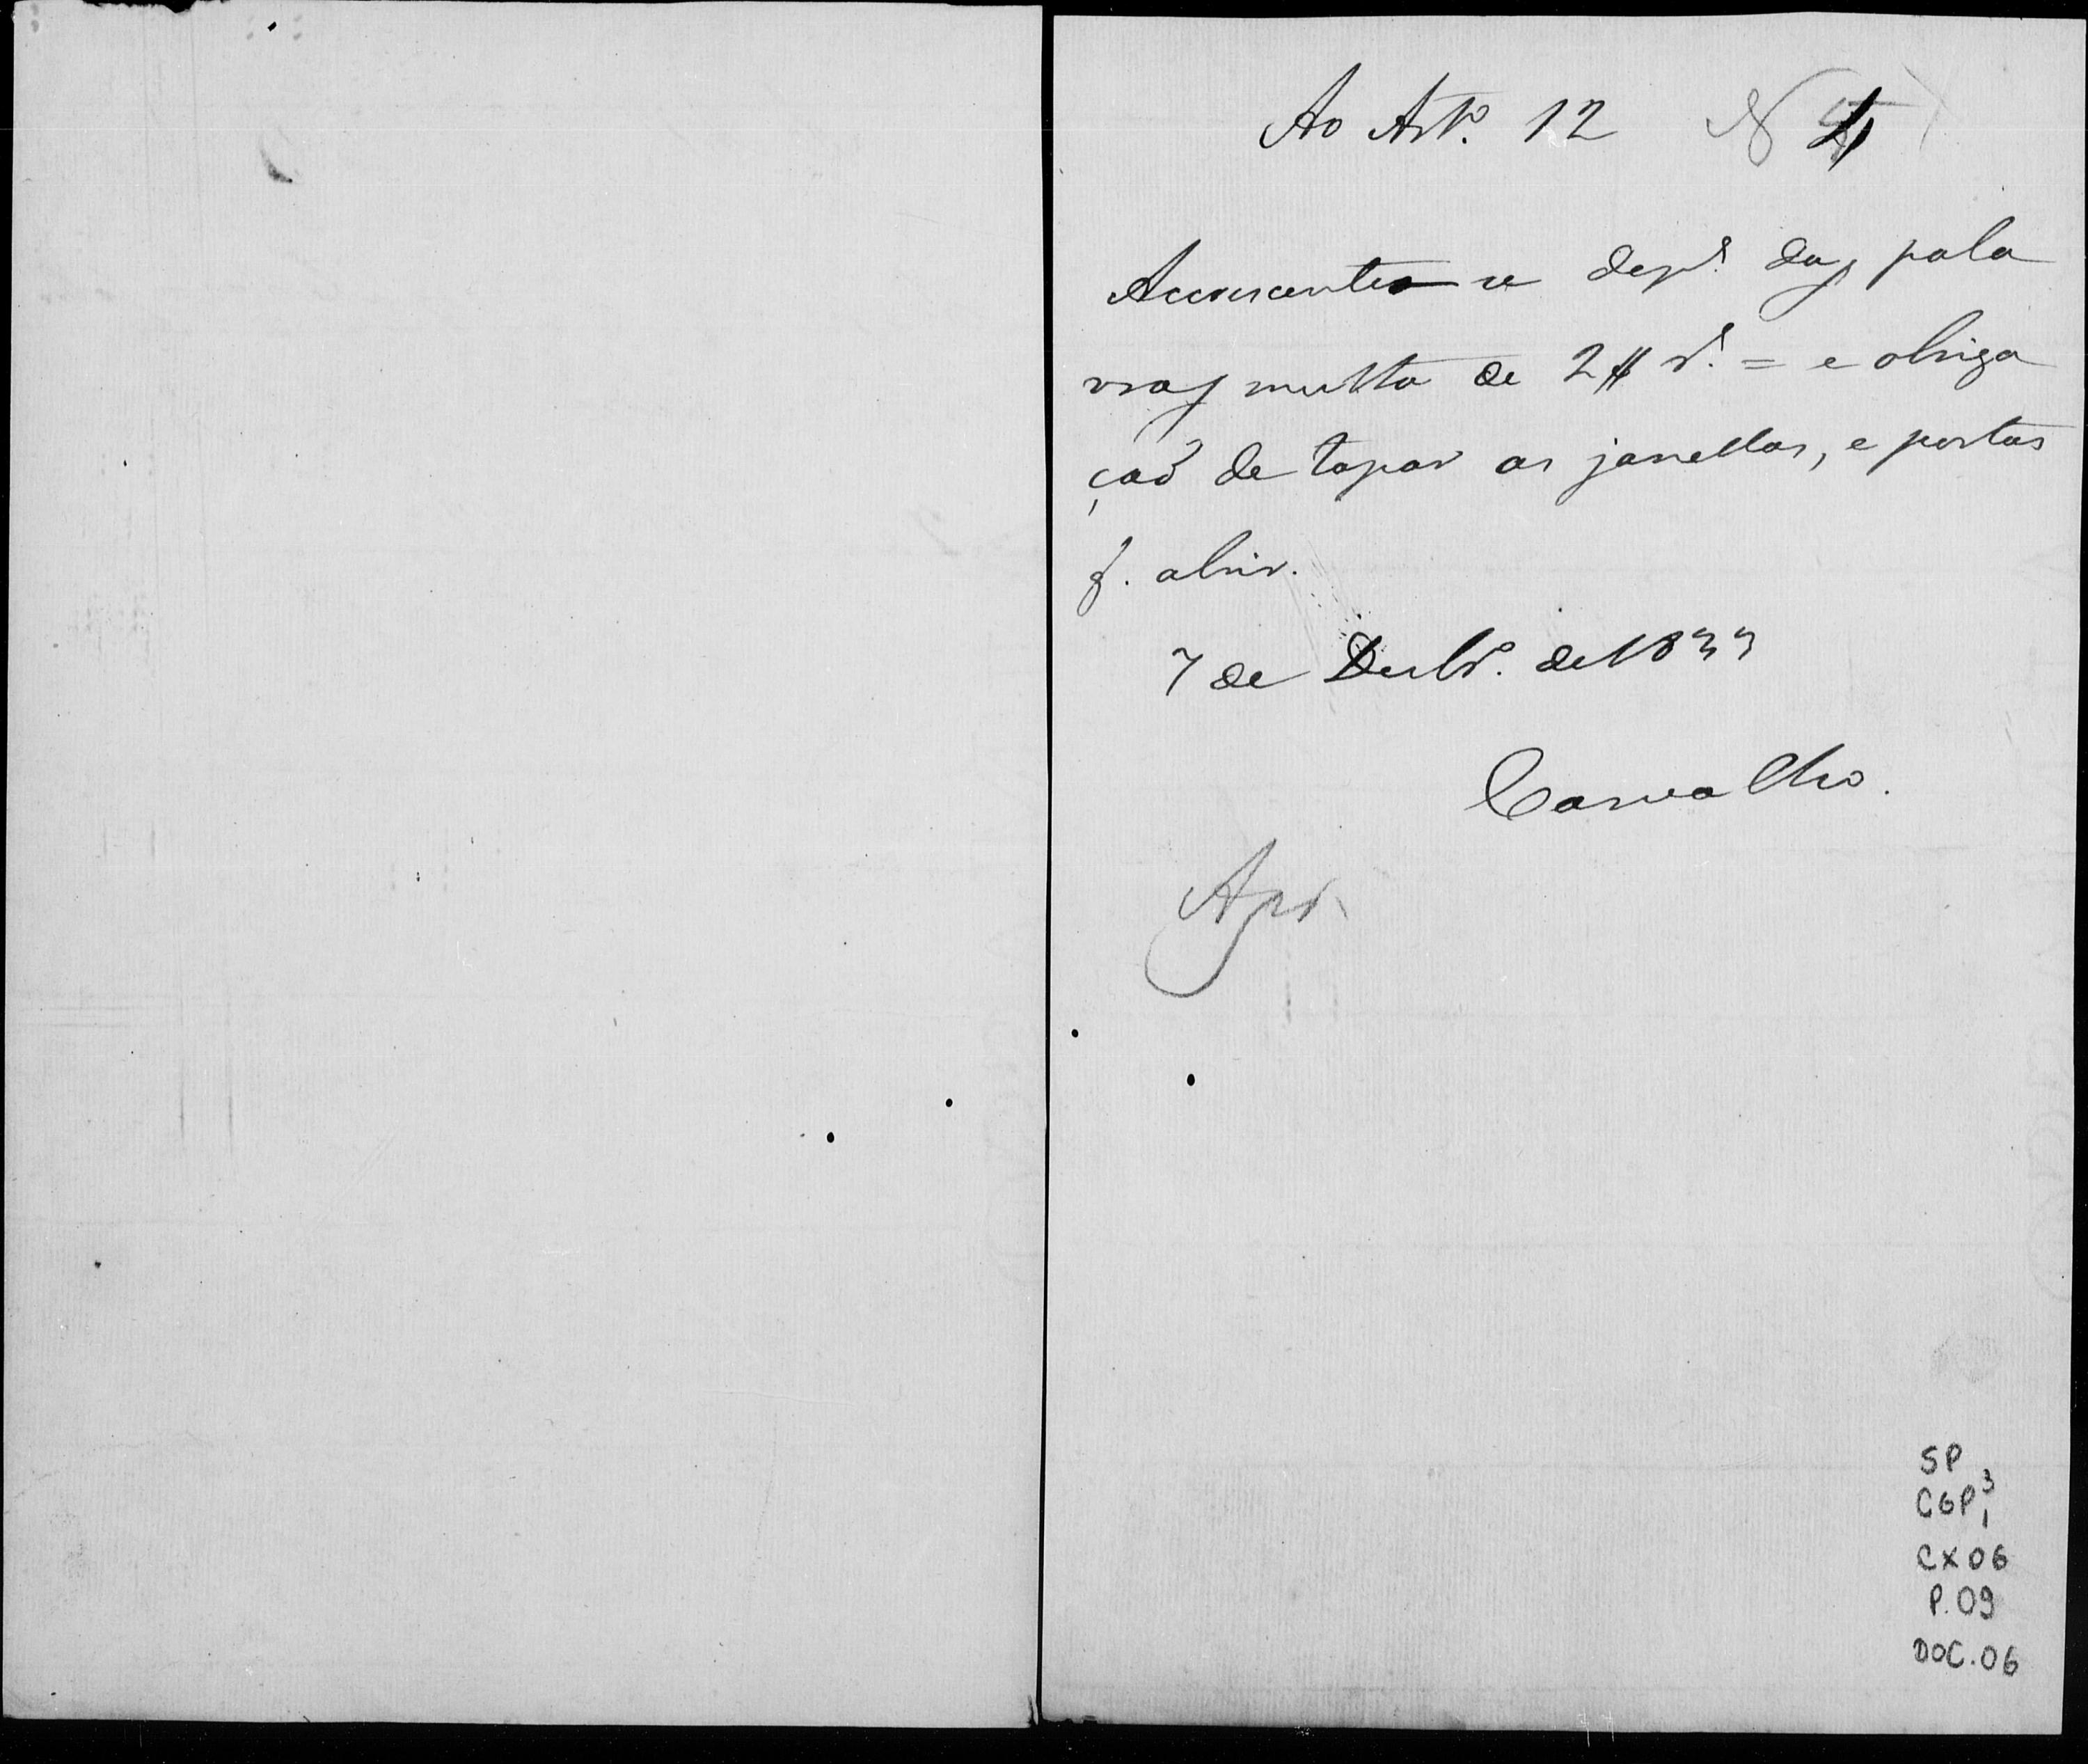 Ao Artº. 12 N 4
Accrescente-se depˢ. das pala
vras multa de 2$ rˢ. = e obriga
çaõ de tapar as janellas, e portas
q. abrir.
7 de Dezbrº. de 1833
Carvalho.
Apr.
SP
CGP 3
1
CX 06
P. 09
DOC. 06